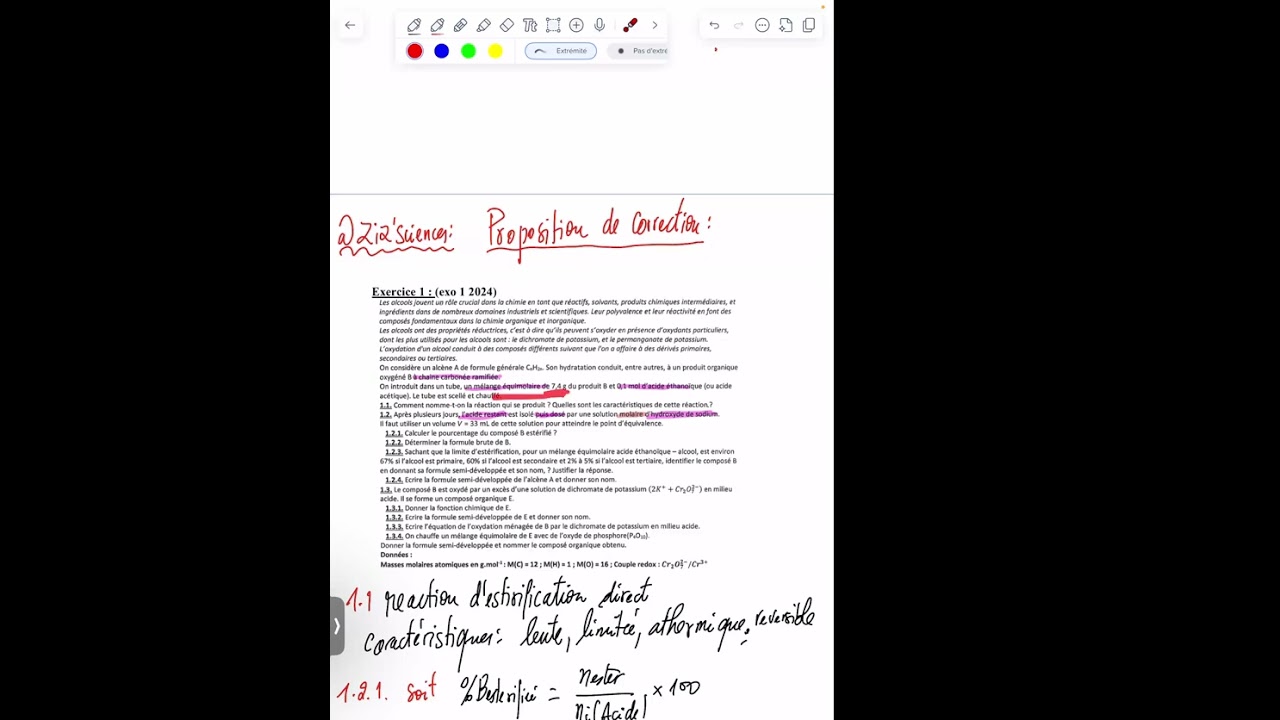 Tt
Extrémité
Pas d'extré
@Ziz'sciences: Proposition de correction:
Exercice 1 : (exo 1 2024)
Les alcools jouent un rôle crucial dans la chimie en tant que réactifs, solvants, produits chimiques intermédiaires, et
ingrédients dans de nombreux domaines industriels et scientifiques. Leur polyvalence et leur réactivité en font des
composés fondamentaux dans la chimie organique et inorganique.
Les alcools ont des propriétés réductrices, c'est à dire qu'ils peuvent s'oxyder en présence d'oxydants particuliers,
dont les plus utilisés pour les alcools sont : le dichromate de potassium, et le permanganate de potassium.
L'oxydation d'un alcool conduit à des composés différents suivant que l'on a affaire à des dérivés primaires,
secondaires ou tertiaires.
On considère un alcène A de formule générale CₙH₂ₙ. Son hydratation conduit, entre autres, à un produit organique
oxygéné B à chaine carbonée ramifiée.
On introduit dans un tube, un mélange équimolaire de 7,4 g du produit B et 0,1 mol d'acide éthanoïque (ou acide
acétique). Le tube est scellé et chauffé.
1.1. Comment nomme-t-on la réaction qui se produit ? Quelles sont les caractéristiques de cette réaction.?
1.2. Après plusieurs jours, l'acide restant est isolé puis dosé par une solution molaire d'hydroxyde de sodium.
Il faut utiliser un volume V = 33 mL de cette solution pour atteindre le point d'équivalence.
1.2.1. Calculer le pourcentage du composé B estérifié ?
1.2.2. Déterminer la formule brute de B.
1.2.3. Sachant que la limite d'estérification, pour un mélange équimolaire acide éthanoïque – alcool, est environ
67% si l'alcool est primaire, 60% si l'alcool est secondaire et 2% à 5% si l'alcool est tertiaire, identifier le composé B
en donnant sa formule semi-développée et son nom, ? Justifier la réponse.
1.2.4. Ecrire la formule semi-développée de l'alcène A et donner son nom.
1.3. Le composé B est oxydé par un excès d'une solution de dichromate de potassium (2K⁺ + Cr₂O₇²⁻) en milieu
acide. Il se forme un composé organique E.
1.3.1. Donner la fonction chimique de E.
1.3.2. Ecrire la formule semi-développée de E et donner son nom.
1.3.3. Ecrire l'équation de l'oxydation ménagée de B par le dichromate de potassium en milieu acide.
1.3.4. On chauffe un mélange équimolaire de E avec de l'oxyde de phosphore(P₄O₁₀).
Donner la formule semi-développée et nommer le composé organique obtenu.
Données :
Masses molaires atomiques en g.mol⁻¹ : M(C) = 12 ; M(H) = 1 ; M(O) = 16 ; Couple redox : Cr₂O₇²⁻/Cr³⁺
1.1 reaction d'estirification direct
caractéristiques: lente, limitée, athermique, reversible
1.2.1. soit %Besterifié = nester/ni(Acide) × 100